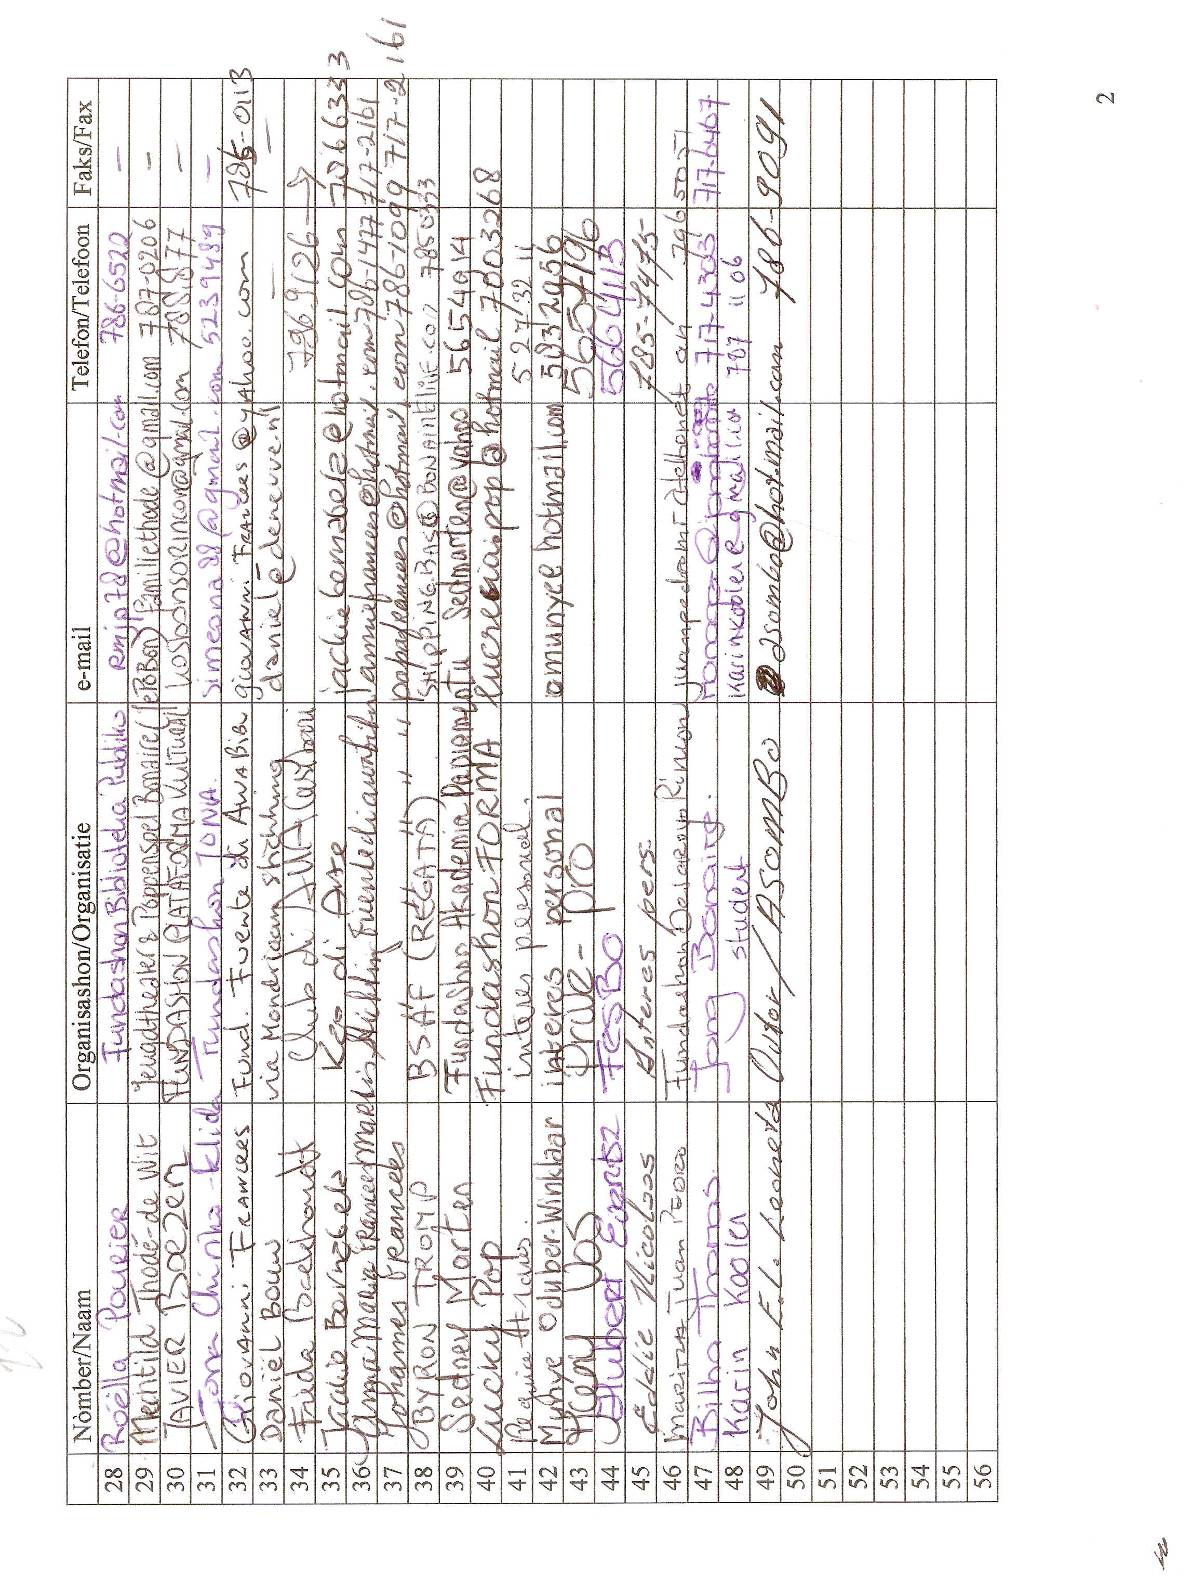 Nòmber/Naam Organisashon/Organisatie e-mail Telefon/Telefoon Faks/Fax
28 Roëlla Pourier Fundashon Biblioteka Publiko emjo78@hotmail.com 786-6522 –
29 Mechtild Thodé-de Wit Jeugdtheater & Poppenspel Bonaire (JePoBon) familiethode@gmail.com 787-0206 –
30 JAVIER BOEZEM FUNDASHON PLATAFORMA KULTURAL kosbonsorincon@gmail.com 7881877 –
31 Jona Chirino-Klida Fundashon JONA simeona28@gmail.com 5239489 –
32 Giovanni Frances Fund. Fuente di AWA Biba giovanni Frances@yahoo.com 786-0113
33 Daniël Bouw via Mondriaan stichting daniel@deneuve.nl – –
34 Frida Club di 7969126 →
35 Jackie Bernabela Kas di Arte jackiebernabela@hotmail.com 7866333
36 Anna Maria Frances Stichting Fuente di awa biba anniefrances@hotmail.com 786-1477 717-2161
37 Johames Frances " " " papafrances@hotmail.com 786-1099 717-2161
38 BYRON TROMP BSAF (REGATA) SHIPPING.BAS@BONAIRELIVE.COM 7850333
39 Sedney Marten Fundashon Akademia Papiamentu sedmarten@yahoo 5654014
40 Lucky Pop Fundashon FORMA lucresia.pop@hotmail 7003268
41 interes personal. 5273211
42 Myrive Oduber-Winklaar interes personal omunyce hotmail.com 5832956
43 Vos Privé-pro 5654196
44 Hubert Evertsz FESBO 5664113
45 Eddie Nicolaas Interes pers. 785-7475
46 Maritza Juan Pedro Fundashon Desaroyo Rincon 7965051
47 Bilha Thomas Jong Bonaire. 717-4303 717-6467
48 Karin Koolen student karinkoolen@gmail.com 787 1106
49 John E.L. Leoneta Outor/ASOMBO asombo@hotmail.com 786-9091
50
51
52
53
54
55
56
2